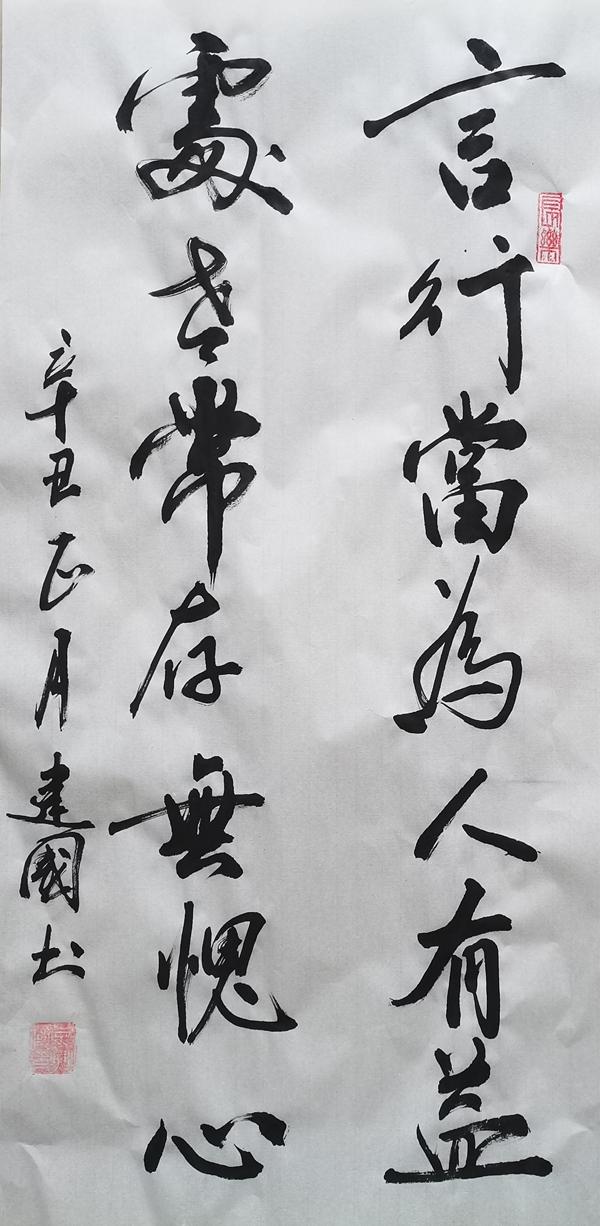 言行當為人有益
處世常存無愧心
辛丑正月建國书
長樂